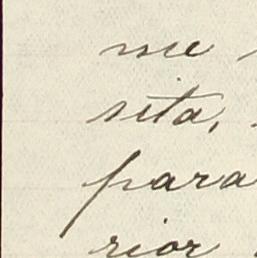 me
sita,
para
rior